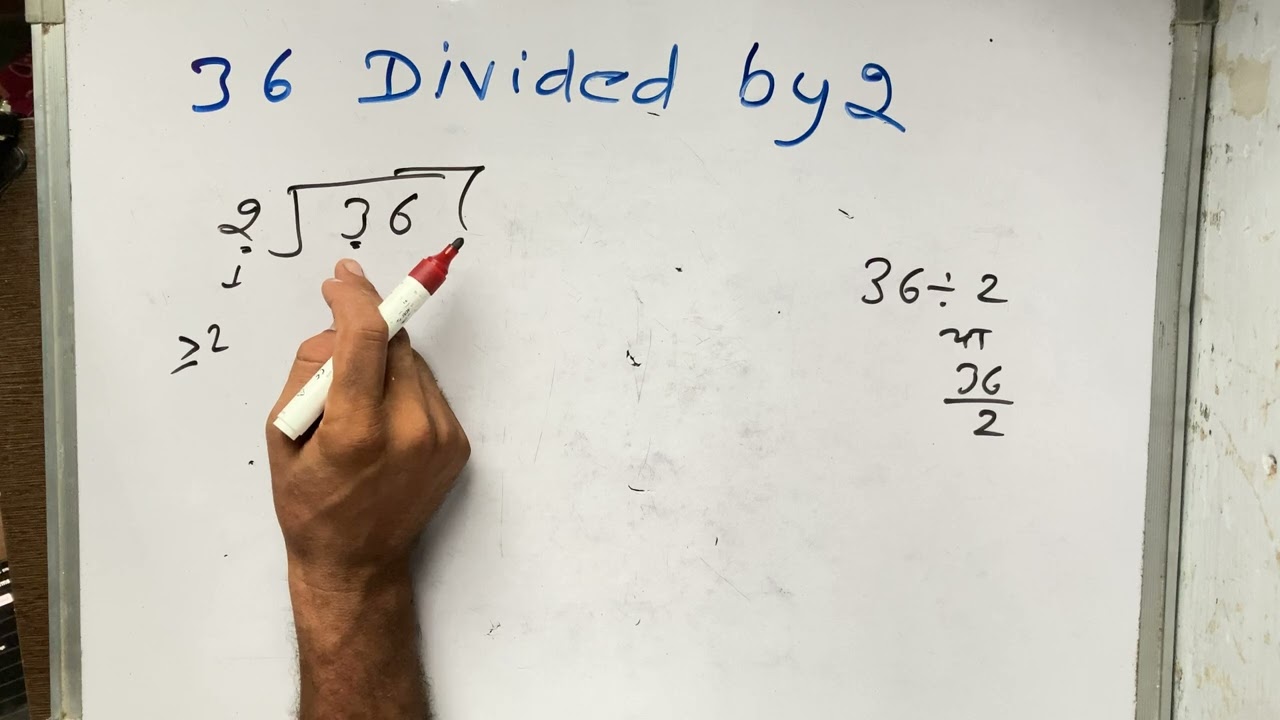 36 Divided by 2
2 36
1
≥2
36÷2
या
36
2